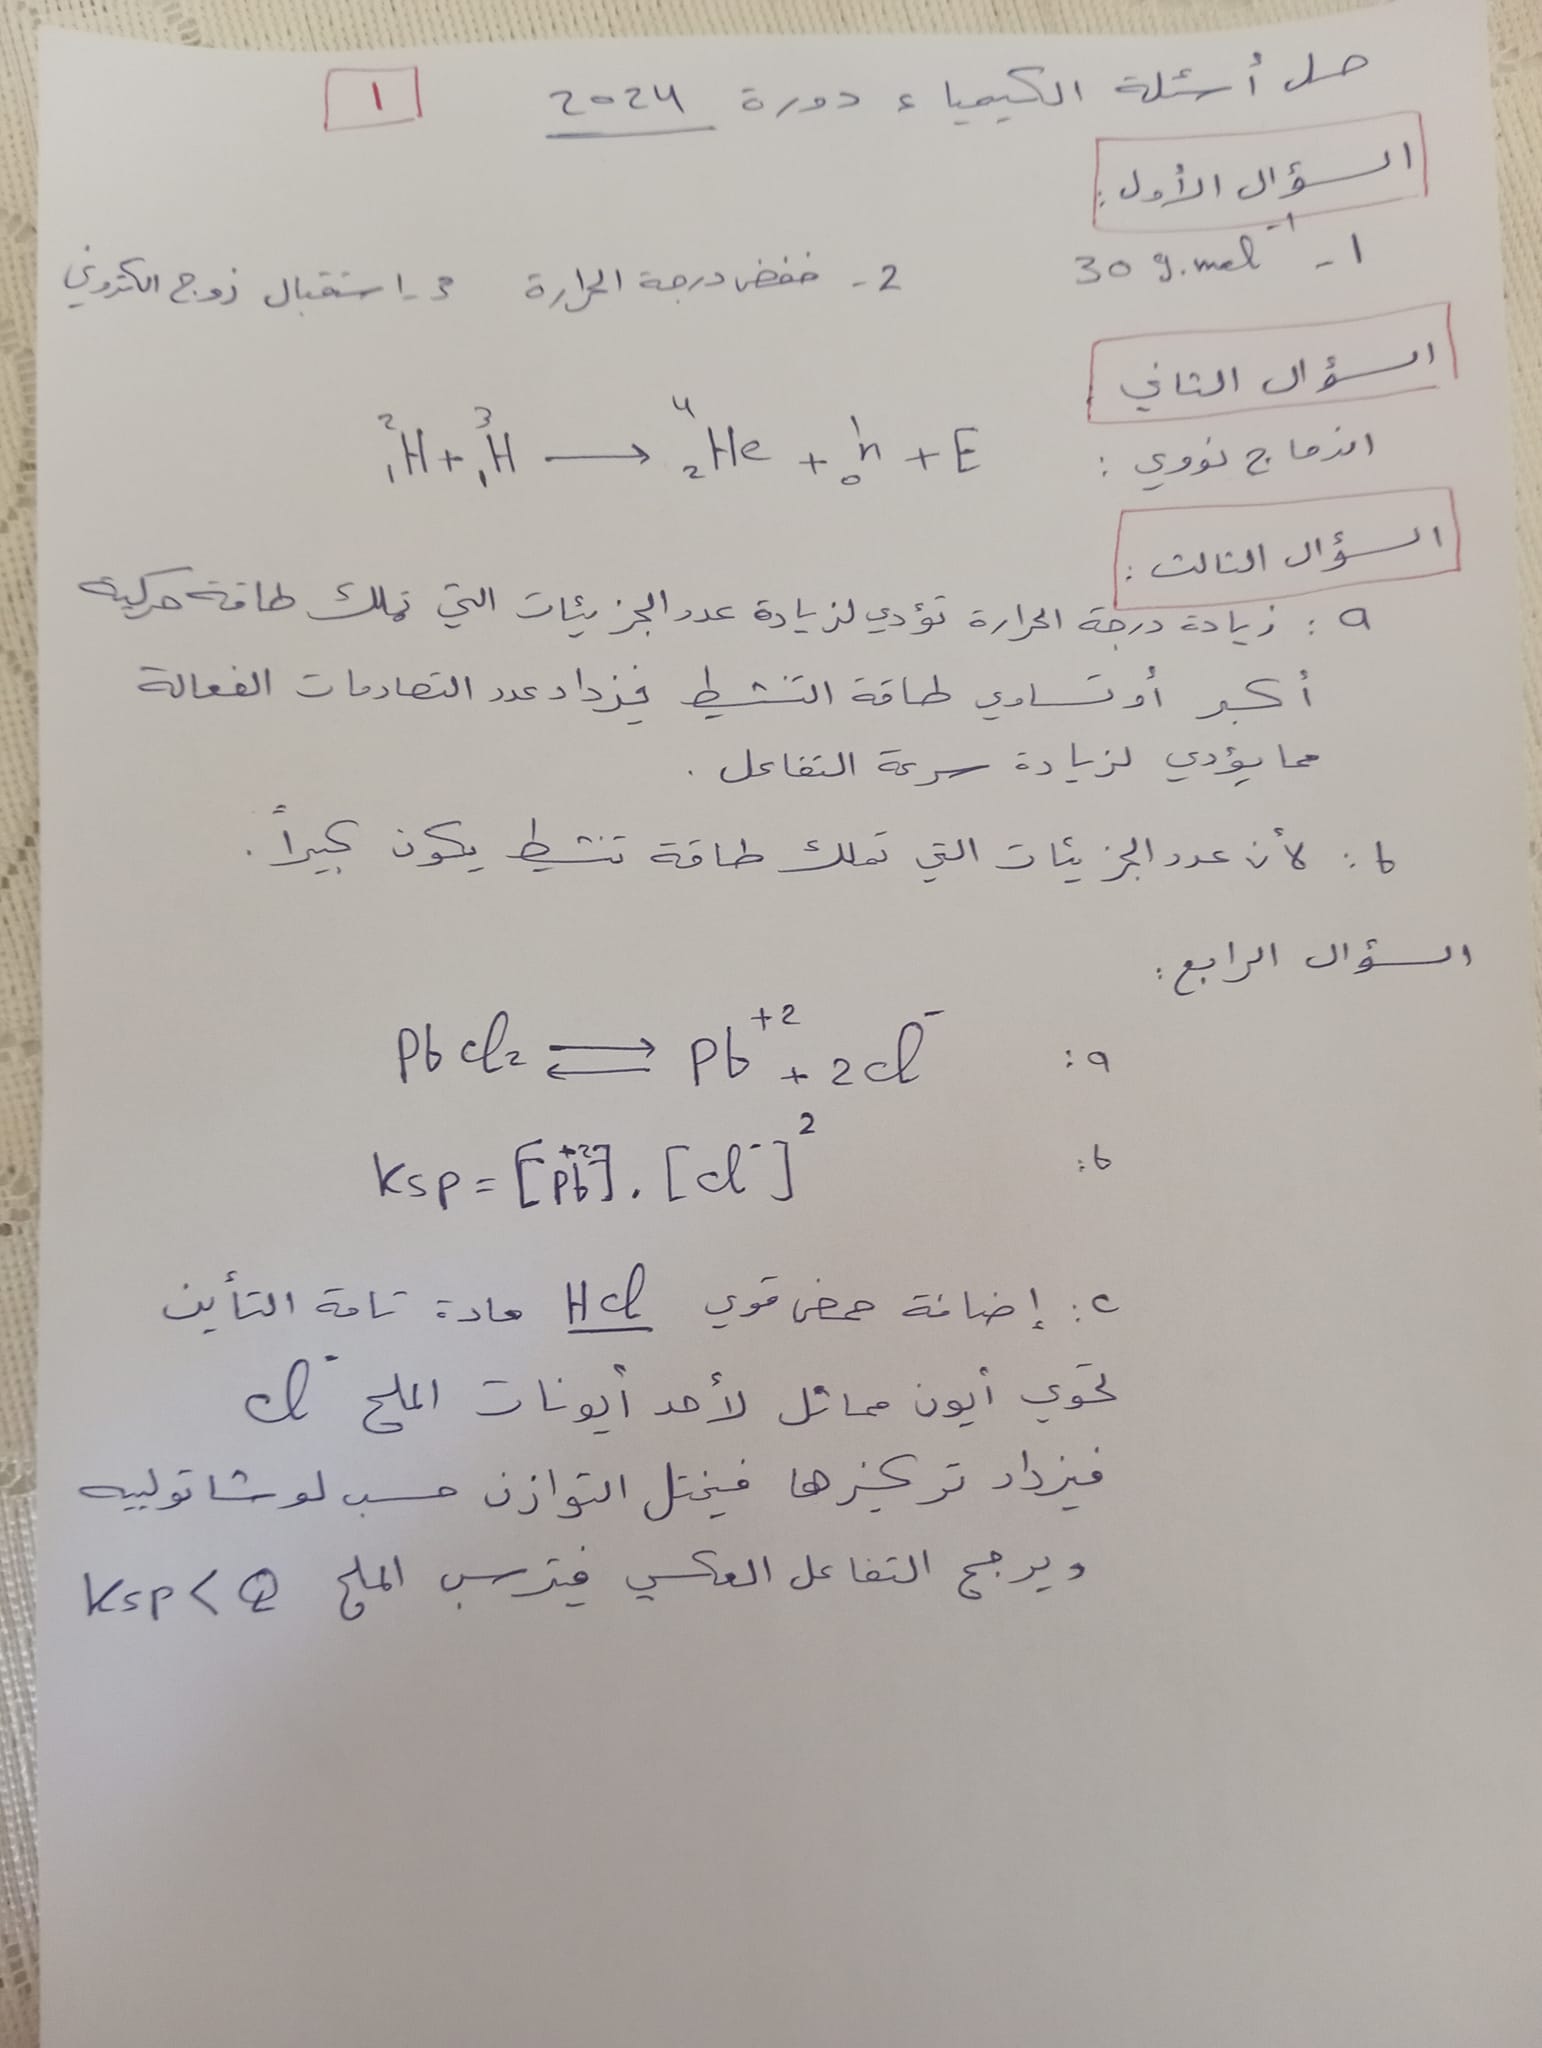 حل أسئلة الكيمياء دورة 2024
1
السؤال الأول:
1- 30 g.mol⁻¹ 2- خفض درجة الحرارة 3- استقبال زوج الكتروني
السؤال الثاني
اندماج نووي : ²₁H + ³₁H → ⁴₂He + ¹₀n + E
السؤال الثالث :
a : زيادة درجة الحرارة تؤدي لزيادة عدد الجزيئات التي تملك طاقة حركية
أكبر أو تساوي طاقة التنشيط فيزداد عدد التصادمات الفعالة
مما يؤدي لزيادة سرعة التفاعل .
b : لأن عدد الجزيئات التي تملك طاقة تنشيط يكون كبيراً .
السؤال الرابع :
a: PbCl₂ ⇌ Pb⁺² + 2Cl⁻
b: Ksp = [Pb⁺²] . [Cl⁻]²
c: إضافة حمض قوي HCl مادة تامة التأين
تحوي أيون مماثل لأحد أيونات الملح Cl⁻
فيزداد تركيزها فيختل التوازن حسب لوشاتولييه
ويرجح التفاعل العكسي فيترسب الملح Ksp < Q